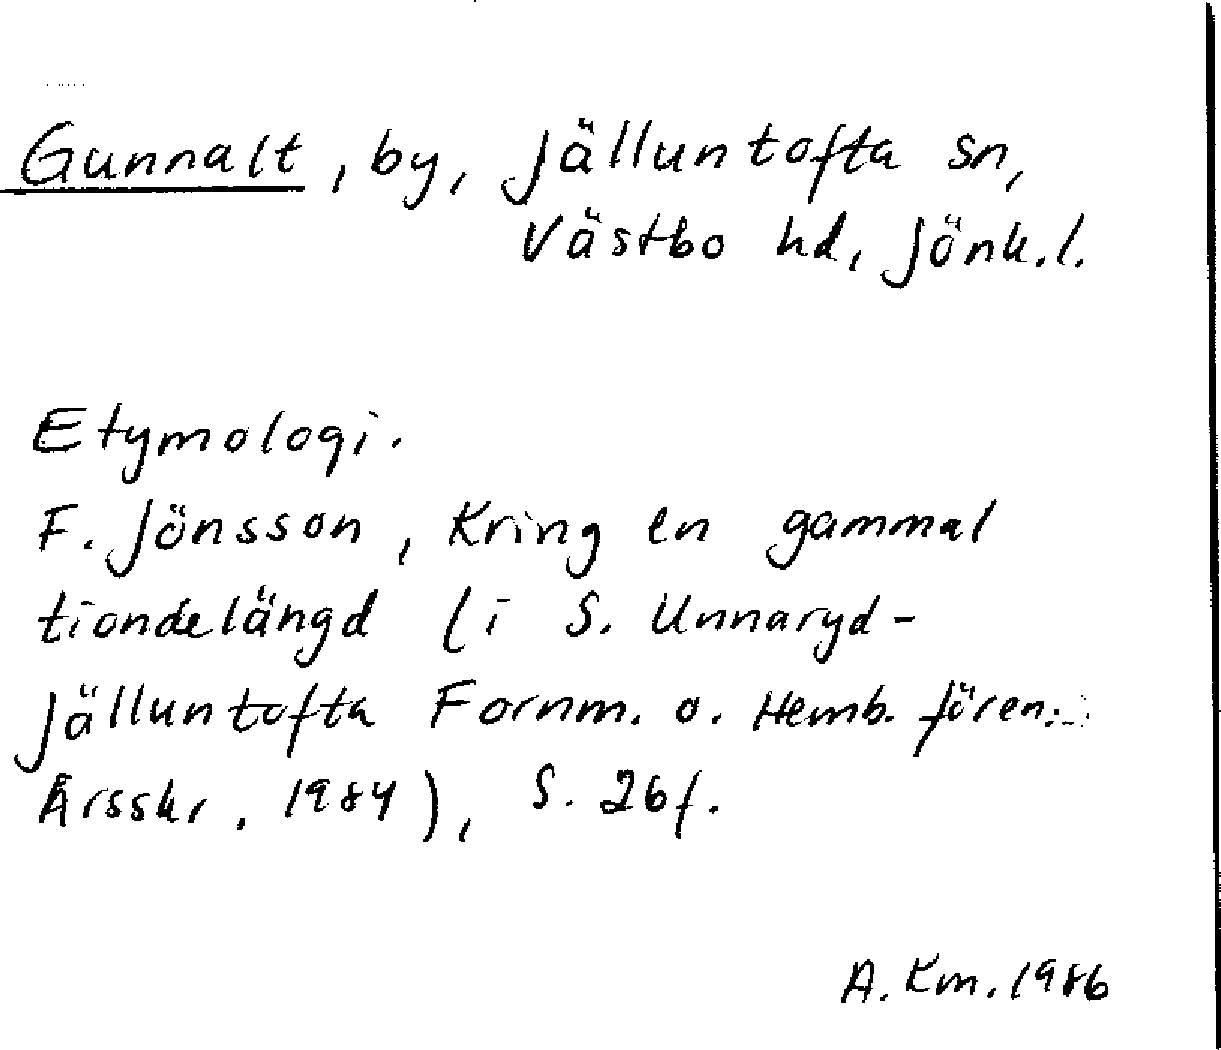 Gunnalt, by, Jälluntofta sn,
Västbo hd, Jönk.l.
Etymologi.
F. Jönsson, Kring en gammal
tiondelängd (i S. Unnaryd-
Jälluntofta Fornm. o. Hemb. fören:
Årsskr. 1984), S. 26f.
A. Km. 1986